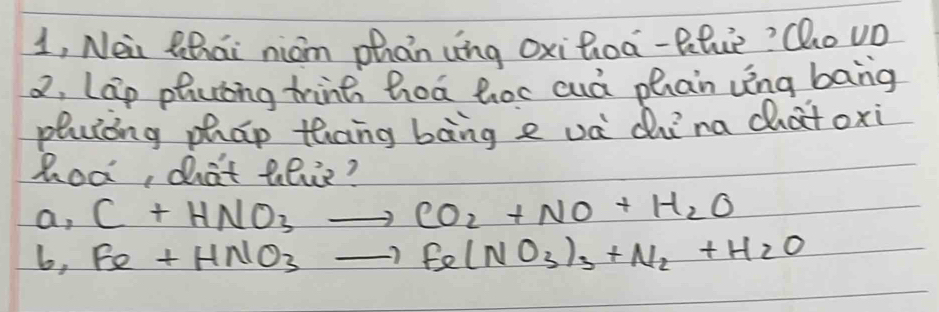 1, Nêu khái niệm phản ứng oxi hoá - khử? Cho VD
2, Lập phương trình hoá học của phản ứng bằng
phương pháp thăng bằng e và chỉ ra chất oxi
hoá, chất khử?
a, C + HNO₃ → CO₂ + NO + H₂O
b, Fe + HNO₃ → Fe(NO₃)₃ + N₂ + H₂O